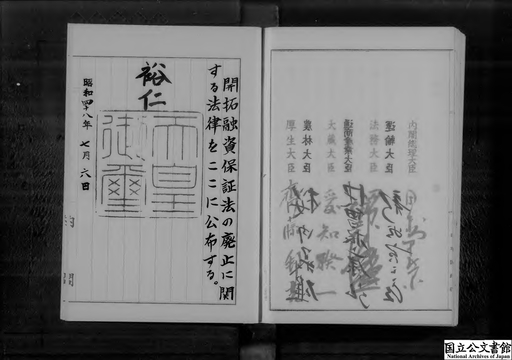 開拓融資保証法の廃止に関
する法律をここに公布する。
裕仁
天皇
御璽
昭和四十八年 七月 六日
内閣総理大臣
運輸大臣
法務大臣
通商産業大臣
大蔵大臣
愛知揆一
農林大臣
厚生大臣
国立公文書館
National Archives of Japan